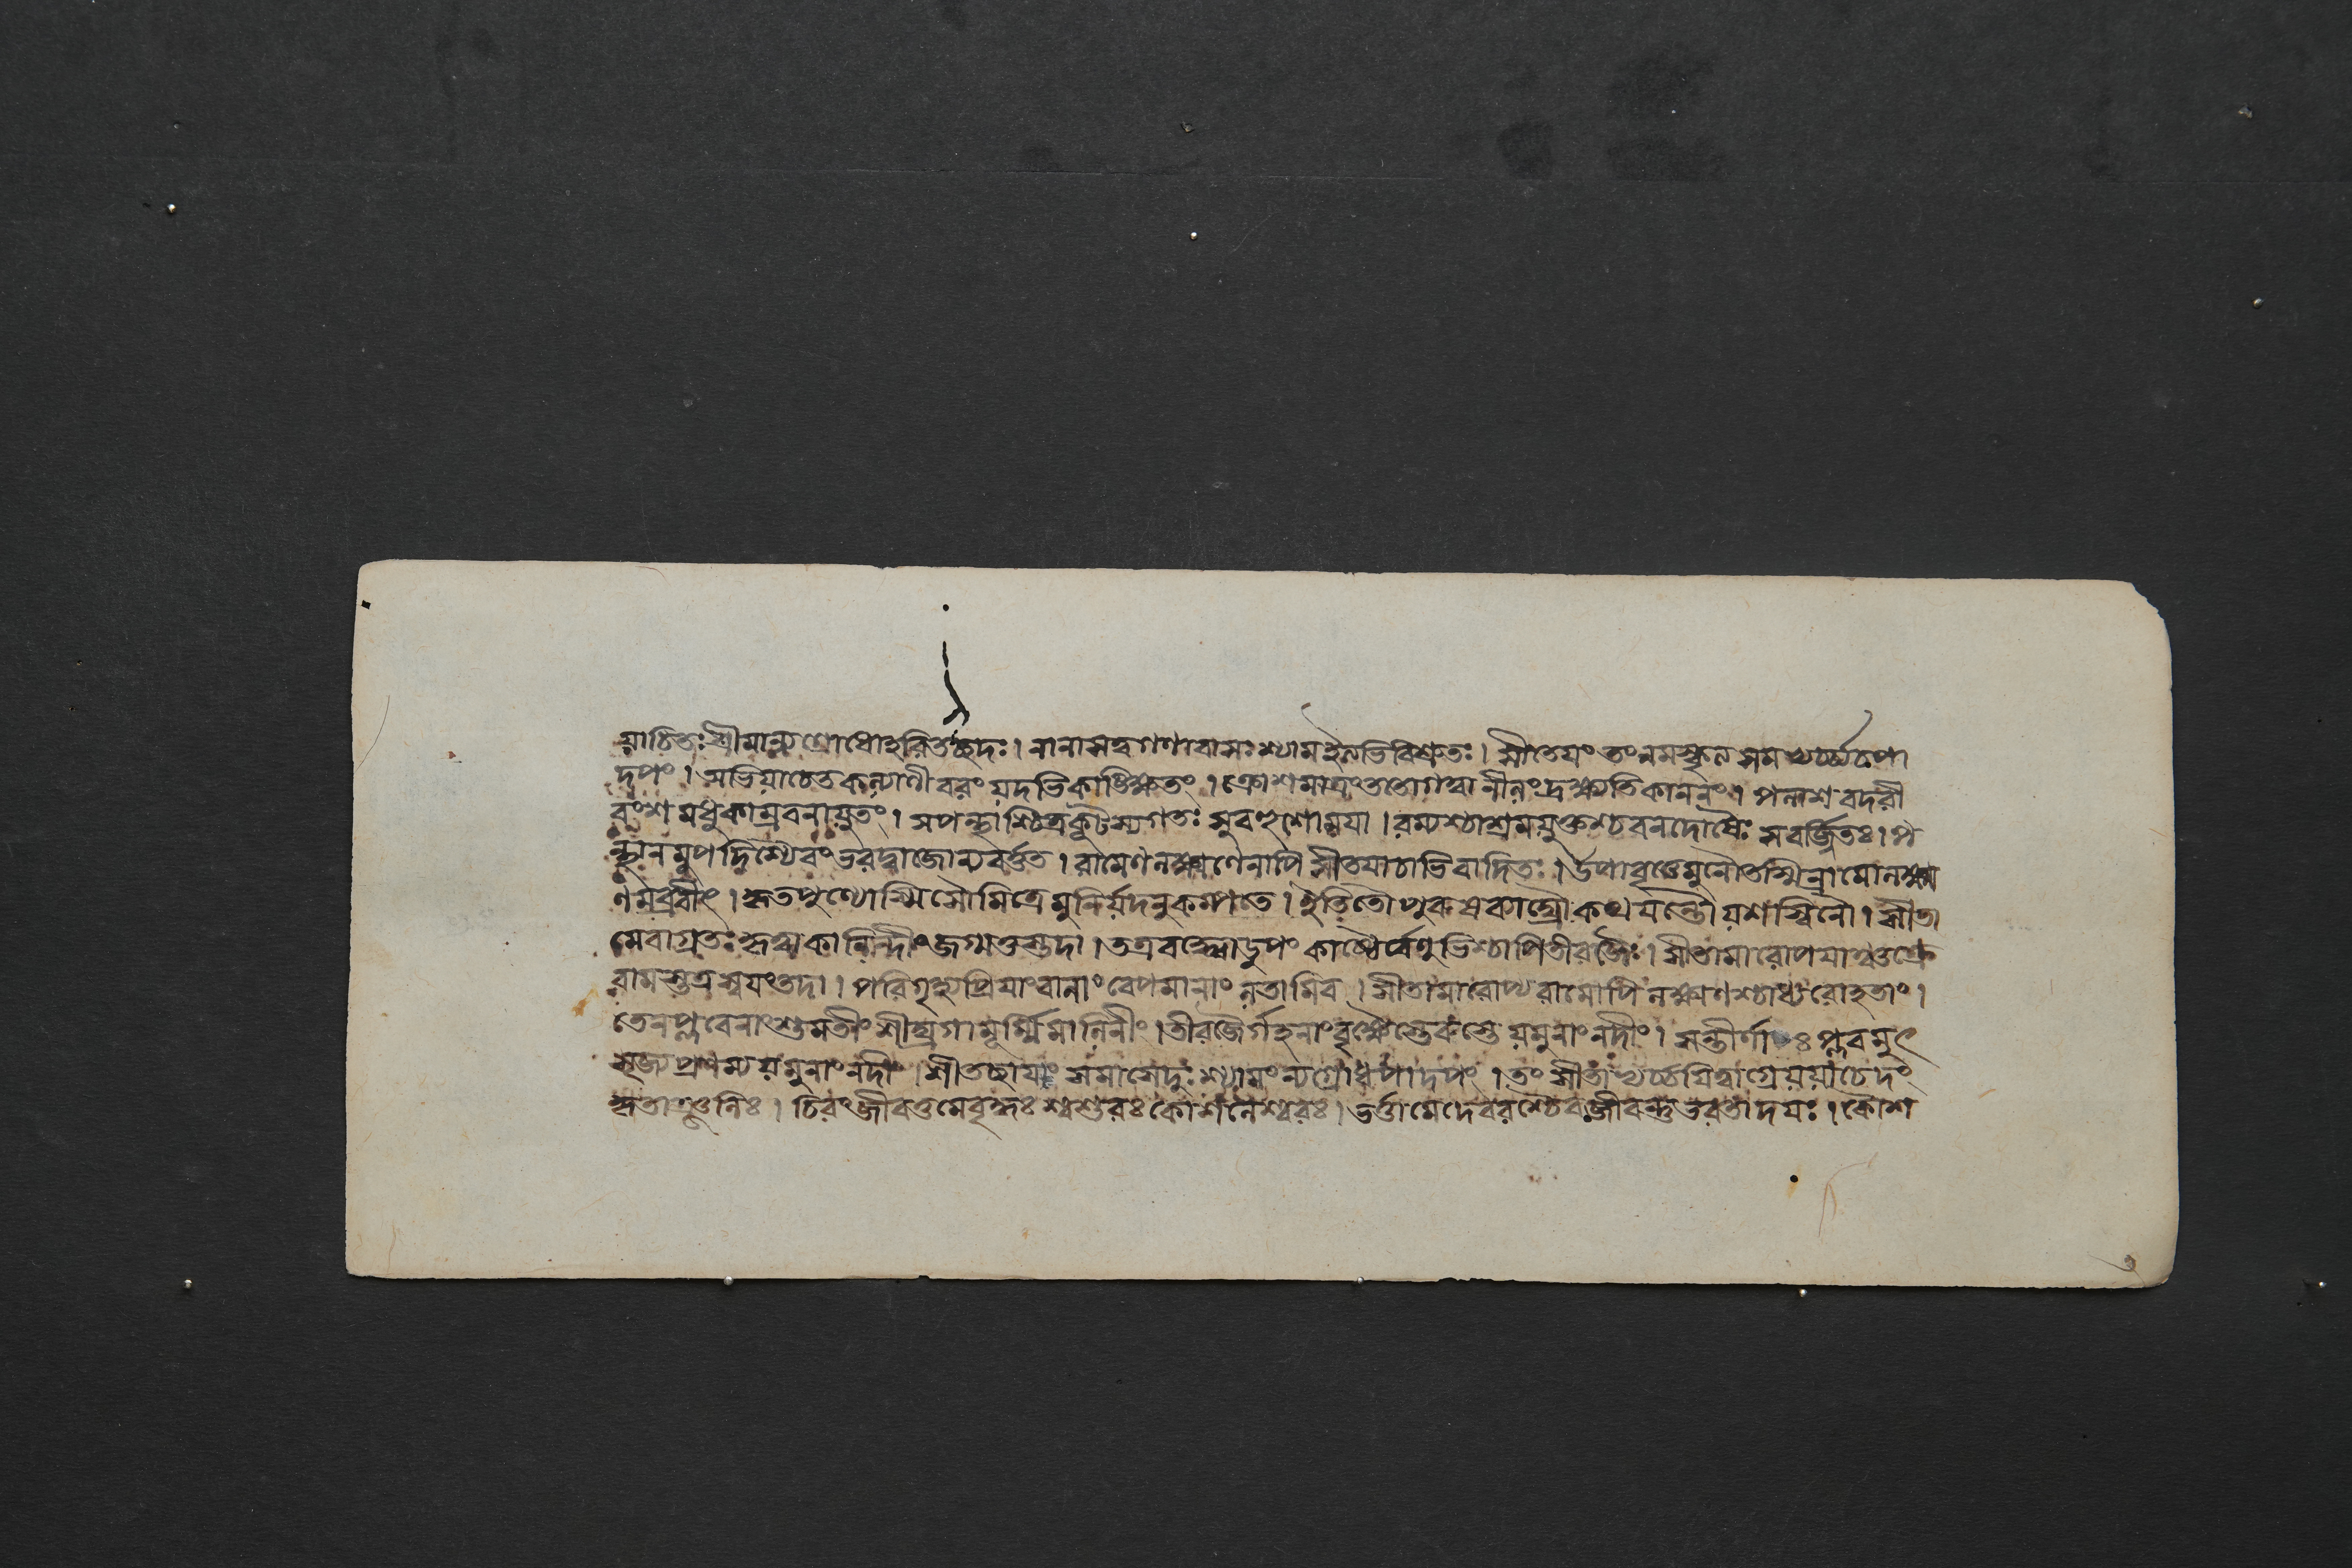 য়াচিতঃ শ্রীমান্ন্যগ্রোধোহরিতচ্ছদঃ। নানাসত্ত্বগণাবাসঃ শ্যামইত্যভিবিশ্রুতঃ। সীতেয়ং তং নমস্কৃত্য সমভ্যর্চ্চ্যচপো
দপং। অভিয়াচেত কল্যাণী বরং যদভিকাঙ্ক্ষিতং। ক্রোশমাত্রং ততোগত্বা নীলং দ্রক্ষ্যতি কাননং। পলাশ বদরী
বংশ মধুকাম্রবনায়ুতং। সপন্থাশ্চিত্রকূটস্যগতঃ সুবহুশোময়া। রম্যশ্চাশ্রমযুক্তশ্চ বনদোষৈঃ সবর্জ্জিতঃ। প
ন্থানমুপদিশ্যৈবং ভরদ্বাজোন্যবর্ত্তত। রামেণ লক্ষ্মণেনাপি সীতয়াচাভিবাদিতঃ। উপাবৃত্তেমুনৌতস্মিন্রামোলক্ষ্ম
ণমব্রবীৎ। কৃতপুণ্যোস্মি সৌমিত্রে মুনির্যদনুকম্পতে। ইতিতৌ কথয়ন্তৌ যশস্বিনৌ। সীতা
মেবাগ্রতঃ কৃত্বা কালিন্দীং জগ্মতুস্তদা। তত্রবদ্ধ্বোডুপং কাষ্ঠৈর্ব্বেণুভিশ্চাপিতীরজৈঃ। সীতামারোপয়াঞ্চক্রে
রামস্তত্রস্বয়ংতদা। পরিগৃহ্যপ্রিয়াং বালাং বেপমানাং লতামিব। সীতামারোপ্য রামোপি লক্ষ্মণশ্চাধ্যরোহতাং।
তেনপ্লবেনাংশুমতীং শীঘ্রগামূর্ম্মিমালিনীং। তীরজৈর্গহনাং বৃক্ষৈস্তেরুস্তে যমুনাং নদীং। সন্তীর্ণাঃ প্লবমুৎ
সৃজ্যপ্রণম্য যমুনাং নদীং। শীতচ্ছায়াং সমাসেদুঃ শ্যামং ন্যগ্রোধপাদপং। তং সীতাভ্যর্চ্চয়িত্বাগ্রেয়য়াচেদং
কৃতাঞ্জলিঃ। চিরং জীবতুমেবৃদ্ধঃ শ্বশুরঃ কোশলেশ্বরঃ। ভর্ত্তামেদেবরশ্চৈব জীবন্তুভরতাদয়ঃ। কৌশ